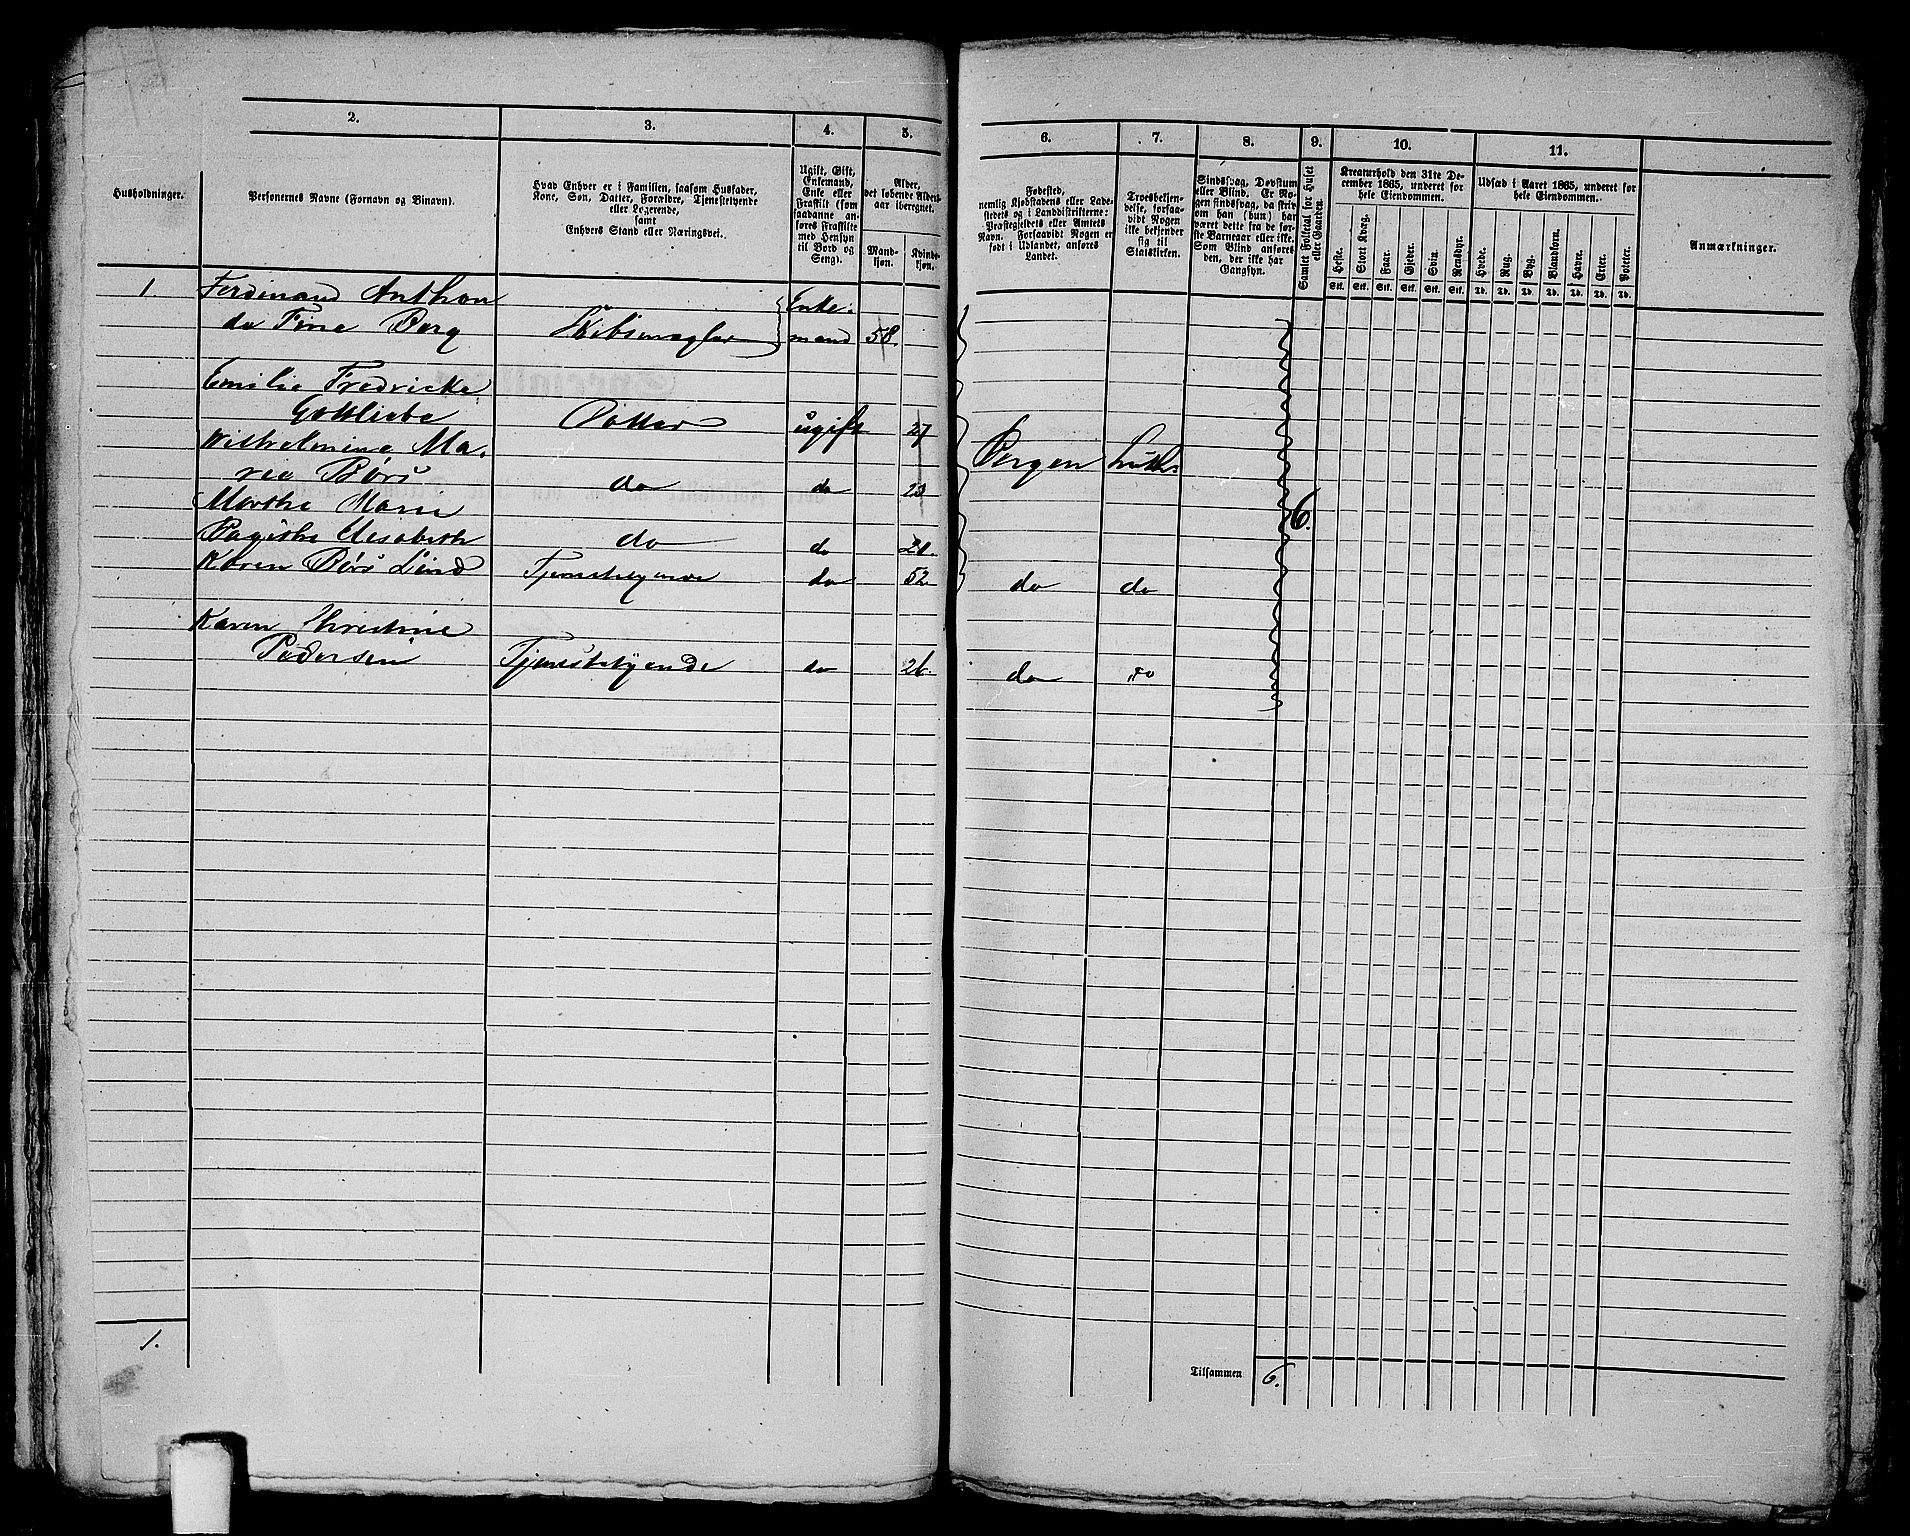 2.
3.
4.
5.
6.
7.
8.
9.
10.
11.
Husholdninger.
Personernes Navne (Fornavn og Binavn).
Hvad Enhver er i Familien, saasom Husfader,
Kone, Søn, Datter, Forældre, Tjenestetyende
eller Logerende,
samt
Enhvers Stand eller Næringsvei.
Ugift, Gift,
Enkemand,
Enke eller
Fraskilt (som
saadanne an-
føres Fraskilte
med Hensyn
til Bord og
Seng).
Alder,
det løbende Alders-
aar iberegnet.
Mand-
kjøn.
Kvinde-
kjøn.
Fødested,
nemlig Kjøbstadens eller Lade-
stedets og i Landdistrikterne:
Præstegjeldets eller Amtets
Navn. Forsaavidt Nogen er
født i Udlandet, anføres
Landet.
Troesbekjen-
delse, forsaa-
vidt Nogen
ikke bekjender
sig til
Statskirken.
Sindssvag, Døvstum
eller Blind. Er No-
gen sindssvag, da skriv
om han (hun) har
været dette fra de før-
ste Barneaar eller ikke.
Som Blind anføres
den, der ikke har
Gangsyn.
Samlet Folketal for Huset
eller Gaarden.
Kreaturhold den 31te De-
cember 1865, underet for
hele Eiendommen.
Heste.
Stort Kvæg.
Faar.
Gjeder.
Svin.
Rensdyr.
Stk. Stk. Stk. Stk. Stk. Stk.
Udsæd i Aaret 1865, underet for
hele Eiendommen.
Hvede.
Rug.
Byg.
Blandkorn.
Havre.
Erter.
Poteter.
Td. Td. Td. Td. Td. Td. Td.
Anmærkninger.
1. Ferdinand Anthon Enke-
de Fine Berg Skibsmægler mand 58.
Emilie Fredrikke
Gottliebe Datter ugift 27
Wilhelmine Ma- Bergen Luth.
rie Børs do do 23
Marthe Marie 6.
Elisabeth do do 21.
Karen Børs Lind Tjenestetyende do 52 do do
Karen Christine
Pedersen Tjenestetyende do 26. do do
1.
Tilsammen 6.